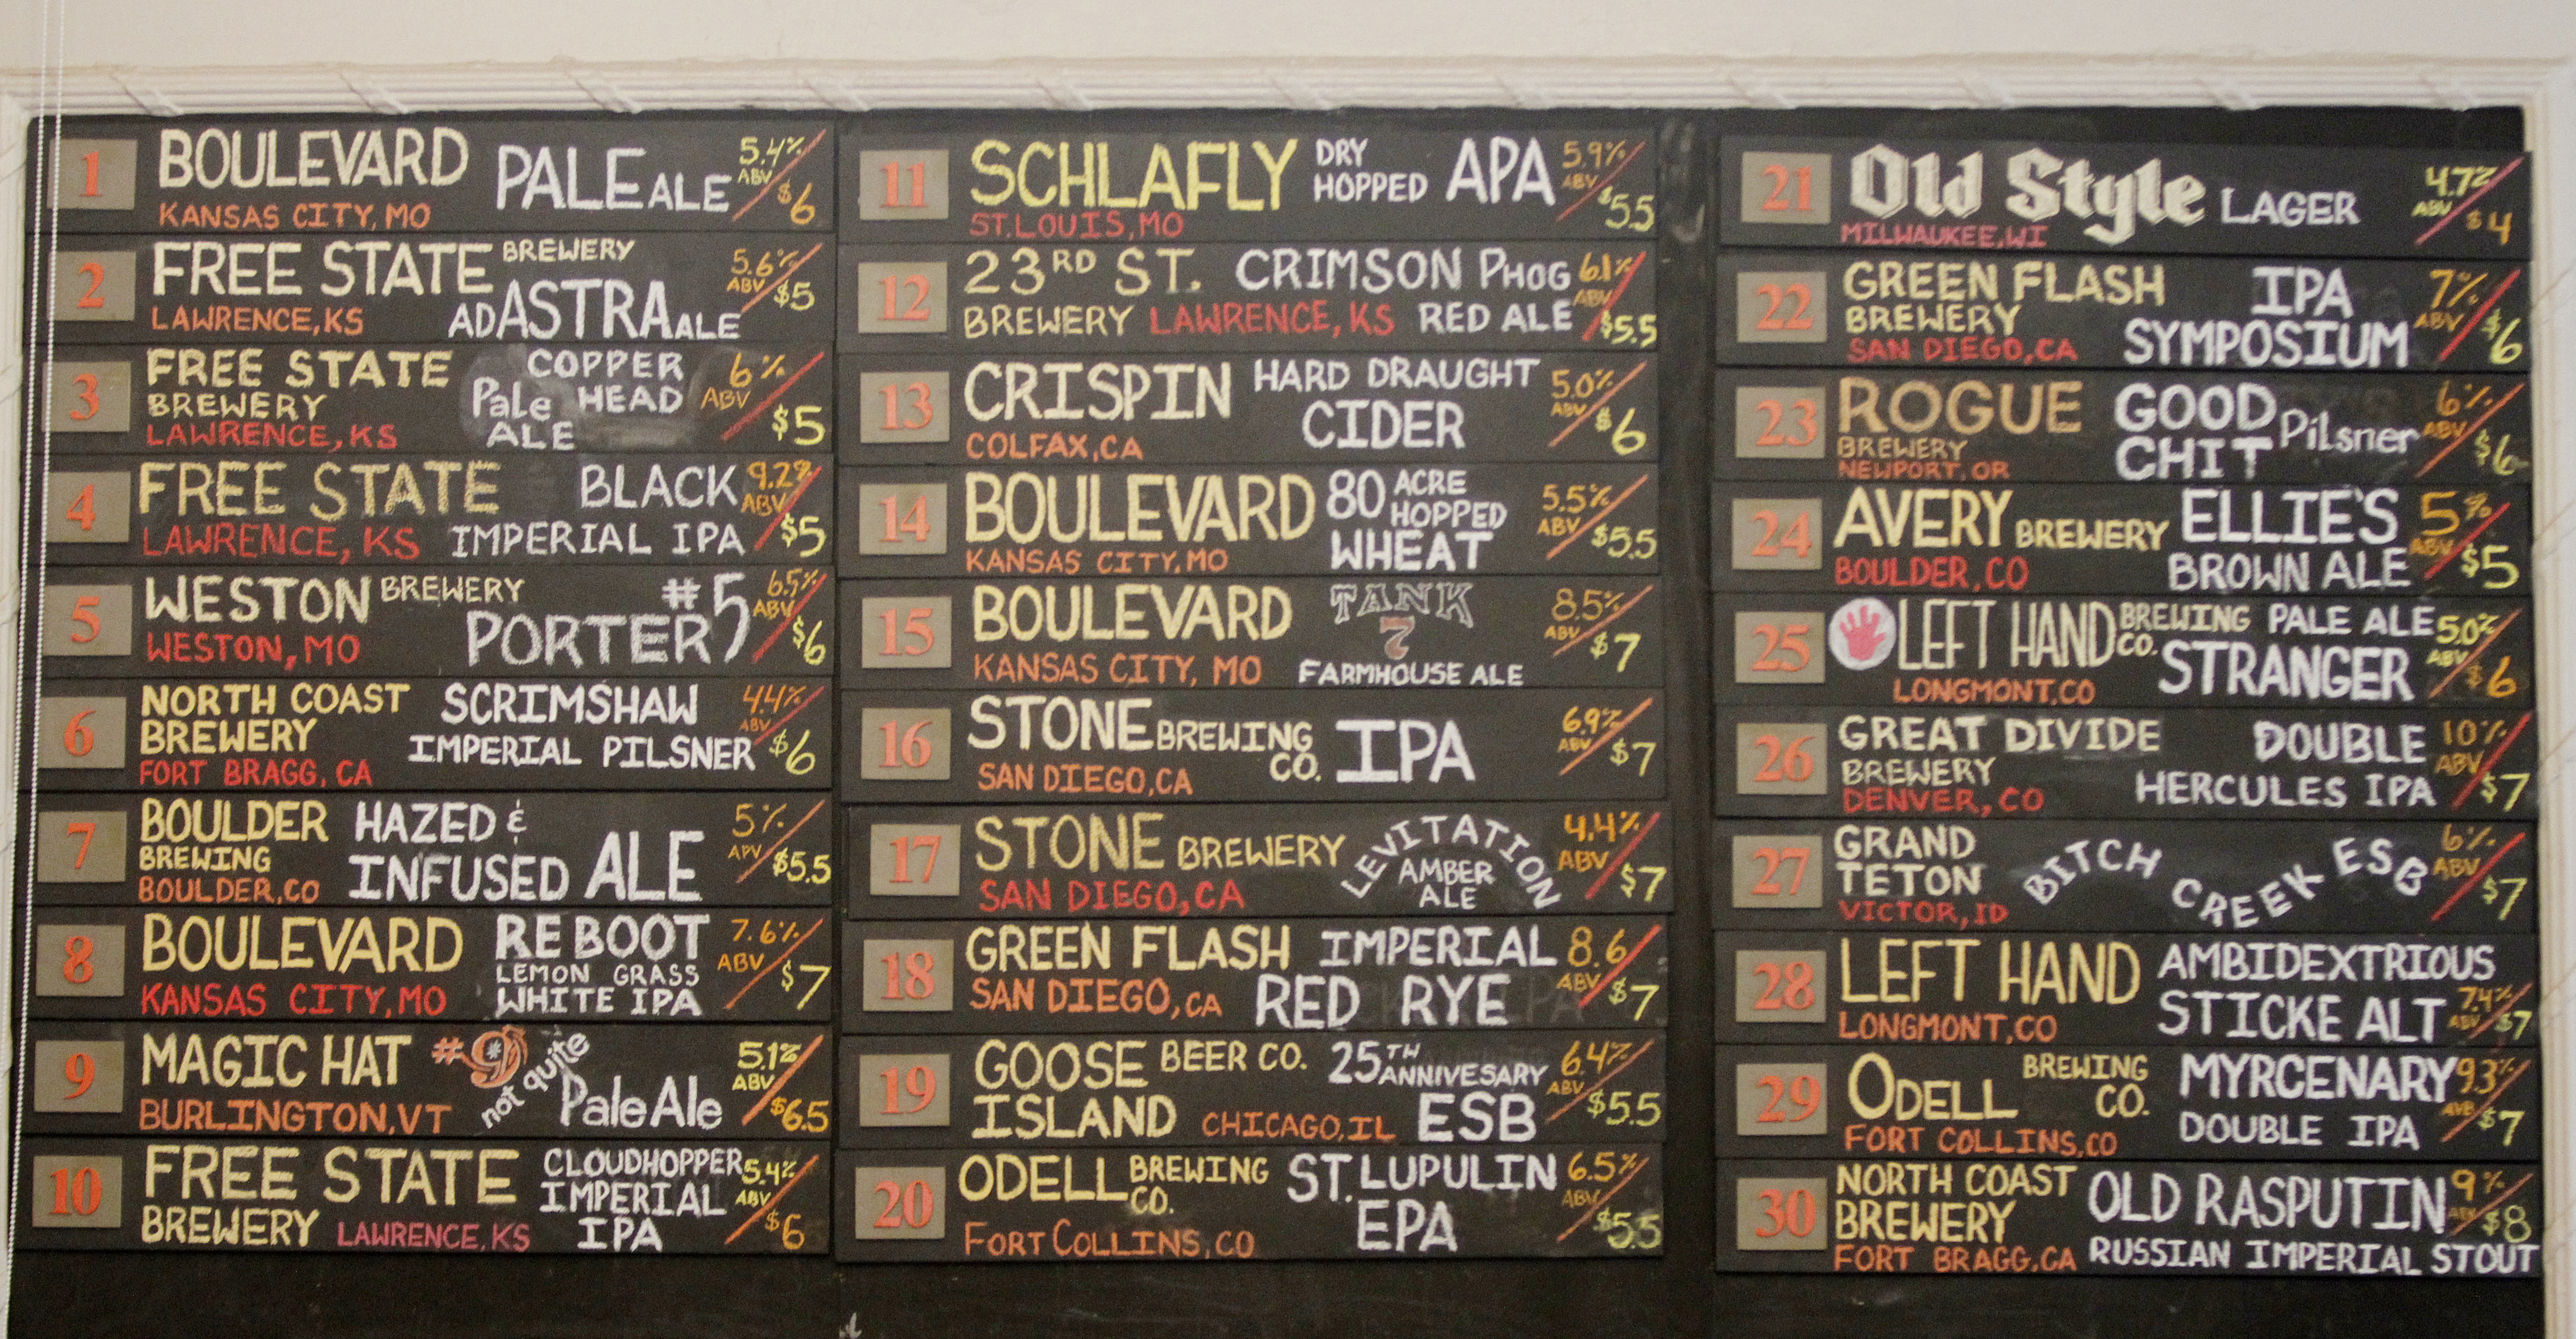 1 BOULEVARD PALE ALE 5.4% ABV $6
KANSAS CITY, MO
2 FREE STATE BREWERY 5.6% ABV $5
LAWRENCE, KS AD ASTRA ALE
3 FREE STATE COPPER 6% ABV
BREWERY Pale HEAD
LAWRENCE, KS ALE $5
4 FREE STATE BLACK 9.2% ABV
LAWRENCE, KS IMPERIAL IPA $5
5 WESTON BREWERY #5 6.5% ABV
WESTON, MO PORTER $6
6 NORTH COAST SCRIMSHAW 4.4% ABV
BREWERY IMPERIAL PILSNER $6
FORT BRAGG, CA
7 BOULDER HAZED & 5% APV
BREWING INFUSED ALE $5.5
BOULDER, CO
8 BOULEVARD REBOOT 7.6% ABV
LEMON GRASS
KANSAS CITY, MO WHITE IPA $7
9 MAGIC HAT #9 not quite 5.1% ABV
BURLINGTON, VT Pale Ale $6.5
10 FREE STATE CLOUDHOPPER 5.4% ABV
IMPERIAL
BREWERY LAWRENCE, KS IPA $6
11 SCHLAFLY DRY HOPPED APA 5.9% ABV
ST. LOUIS, MO $5.5
12 23RD ST. CRIMSON PHOG 6.1% ABV
BREWERY LAWRENCE, KS RED ALE $5.5
13 CRISPIN HARD DRAUGHT 5.0% ABV
COLFAX, CA CIDER $6
14 BOULEVARD 80 ACRE HOPPED 5.5% ABV
KANSAS CITY, MO WHEAT $5.5
15 BOULEVARD TANK 7 8.5% ABV
KANSAS CITY, MO FARMHOUSE ALE $7
16 STONE BREWING CO. IPA 6.9% ABV
SAN DIEGO, CA $7
17 STONE BREWERY LEVITATION 4.4% ABV
SAN DIEGO, CA AMBER ALE $7
18 GREEN FLASH IMPERIAL 8.6 ABV
SAN DIEGO, CA RED RYE $7
19 GOOSE BEER CO. 25TH ANNIVESARY 6.4% ABV
ISLAND CHICAGO, IL ESB $5.5
20 ODELL BREWING CO. ST. LUPULIN 6.5% ABV
FORT COLLINS, CO EPA $5.5
21 Old Style LAGER 4.7% ABV $4
MILWAUKEE, WI
22 GREEN FLASH IPA 7% ABV
BREWERY SYMPOSIUM $6
SAN DIEGO, CA
23 ROGUE GOOD Pilsner 6% ABV
BREWERY CHIT $6
NEWPORT, OR
24 AVERY BREWERY ELLIE'S 5% ABV
BOULDER, CO BROWN ALE $5
25 LEFT HAND BREWING CO. PALE ALE 5.0% ABV
LONGMONT, CO STRANGER $6
26 GREAT DIVIDE DOUBLE 10% ABV
BREWERY HERCULES IPA $7
DENVER, CO
27 GRAND BITCH CREEK ESB 6% ABV
TETON $7
VICTOR, ID
28 LEFT HAND AMBIDEXTRIOUS
LONGMONT, CO STICKE ALT 7.4% ABV $7
29 ODELL BREWING CO. MYRCENARY 9.3% AVB
FORT COLLINS, CO DOUBLE IPA $7
30 NORTH COAST OLD RASPUTIN 9% ABV
BREWERY $8
FORT BRAGG, CA RUSSIAN IMPERIAL STOUT